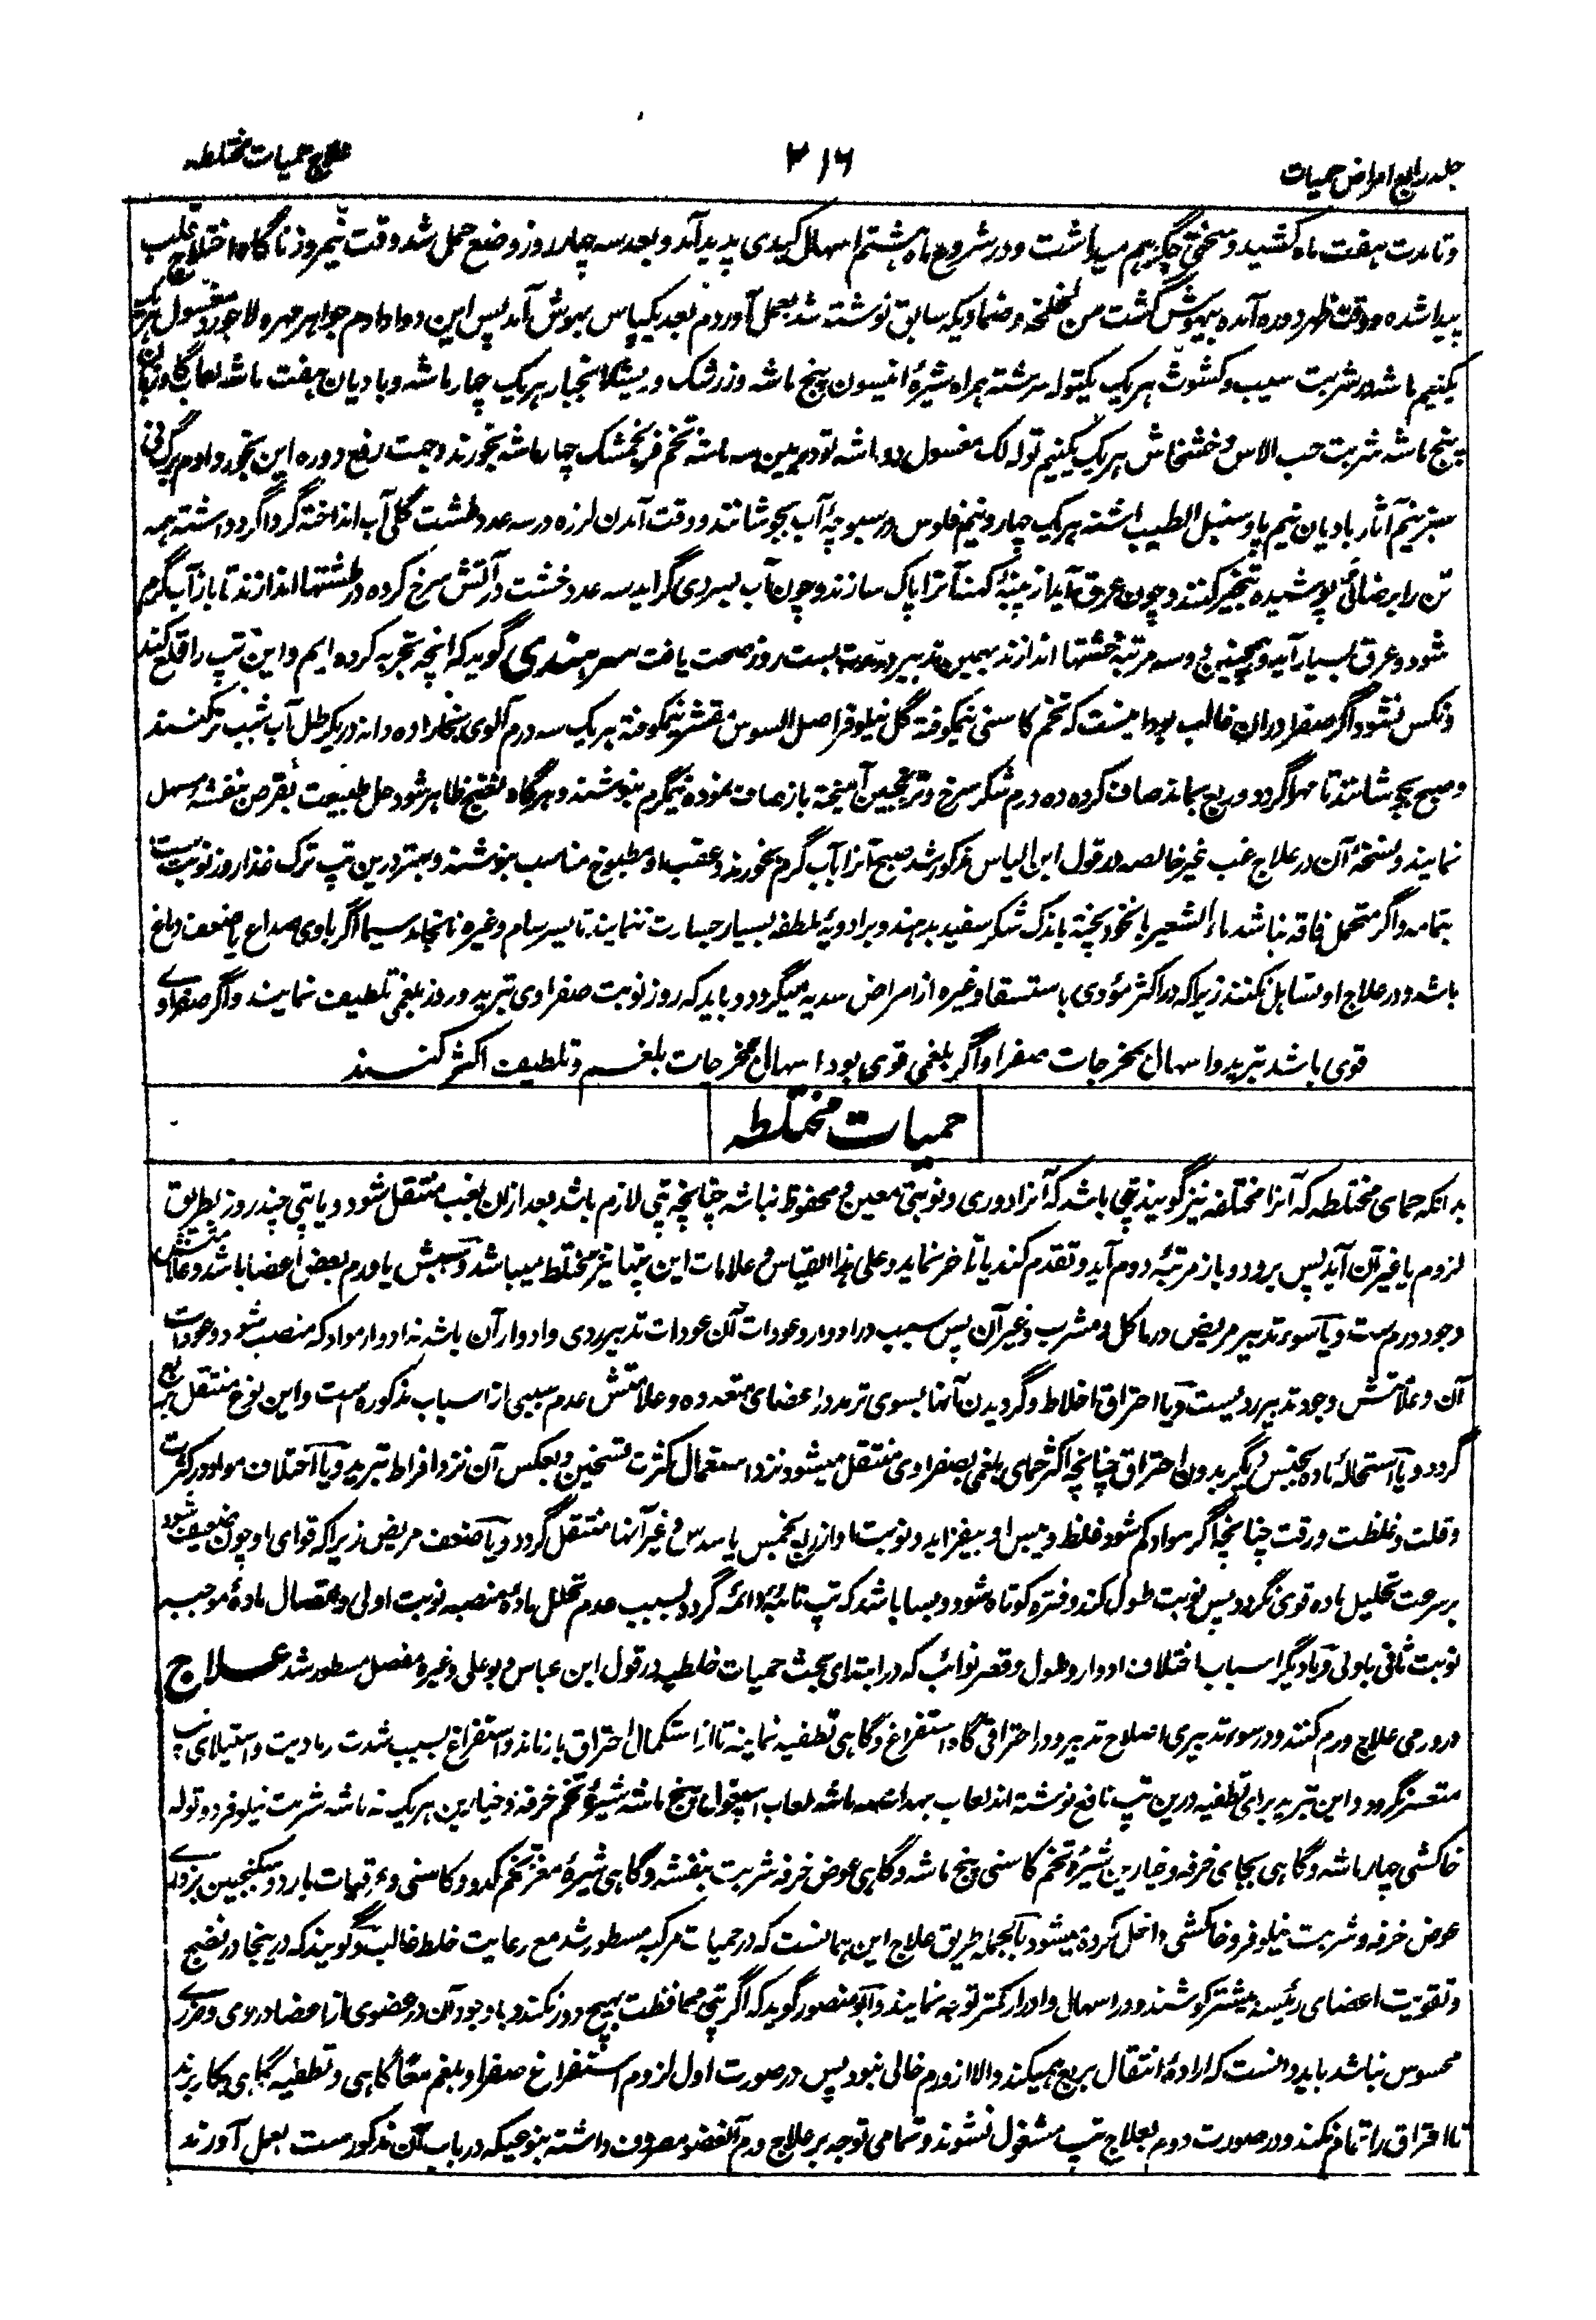 جلد رابع امراض حمیات
۲۱۶
علاج حمیات مختلطه
و تا مدت هفت ماه کشید و سختی جگر هم میداشت و در شروع ماه هشتم اسهال کبدی پدید آمد و بعد سه چهار روز وضع حمل شد وقت نیمروز ناگاه اختلاج قلب
پیدا شده و وقت ظهر دوره آمده بیهوش گشت من لخلخه و ضمادیکه سابق نوشته شد بعمل آوردم بعد یکپاس بهوش آمد پس این دوا دادم جواهر مهره لاجورد مغسول هر یک
یکنیم ماشه در شربت سیب و کشوث هر یک یکتوله سرشته همراه شیرهٔ انیسون پنج ماشه و زرشک و ریشهٔ انجبار هر یک چهار ماشه و بادیان هفت ماشه لعاب گاوزبان
پنج ماشه شربت حب الآس و خشخاش هر یک یکنیم توله لک مغسول دو ماشه تودریین سه ماشه تخم فرنجمشک چهار ماشه بخورند و جهت رفع دوره این بخور دادم برگ
سبز نیم آثار بادیان نیم پاو سنبل الطیب اشنه هر یک چهار و نیم فلوس در سبوچهٔ آب بجوشانند و وقت آمدن لرزه در سه عدد طشت گلی آب انداخته گرداگرد داشته همه
تن را برضائی پوشیده تبخیر کنند و چون عرق آید از پنبهٔ کهنه آنرا پاک سازند و چون آب بسردی گراید سه عدد خشت در آتش سرخ کرده در طشتها اندازند تا باز آب گرم
شود و عرق بسیار آید و همچنین دو سه مرتبه خشتها اندازند بهمین تدبیر در مدت بست روز صحت یافت سرهندی گوید که انچه تجربه کرده ایم و این تپ را قلع کند
و نکس نشود اگر صفرا دران غالب بود اینست که تخم کاسنی نیمکوفته گل نیلوفر اصل السوس مقشر نیمکوفته هر یک سه درم آلوی بخارا ده دانه در یکرطل آب شب تر کنند
و صبح بجوشانند تا مهرا گردد و ربع بماند صاف کرده ده درم شکر سرخ و ترنجبین آمیخته باز صاف نموده نیمگرم بنوشند و هرگاه نضج ظاهر شود حل طبیعت بقرص بنفشه مسهل
نمایند و نسخهٔ آن در علاج غب غیر خالصه در قول ابن الیاس مذکور شد صبح آنرا بآب گرم بخورند و عقب او مطبوخ مناسب بنوشند و بهتر درین تپ ترک غذا روز نوبت ست
بتمامه و اگر متحمل فاقه نباشد ماء الشعیر با نخود پخته باندک شکر سفید بدهند و بر ادویهٔ ملطفه بسیار جسارت ننمایند تا بسرسام وغیره نانجامد سیما اگر باوی صداع یا ضعف دماغ
باشد و در علاج او تساهل نکنند زیرا که در اکثر مؤدی باستسقا وغیره از امراض سدیه میگردد و باید که روز نوبت صفراوی تبرید و روز بلغمی تلطیف نمایند و اگر صفراوی
قوی باشد تبرید و اسهال بمخرجات صفرا و اگر بلغمی قوی بود اسهال بمخرجات بلغم و تلطیف اکثر کنند
حمیات مختلطه
بدانکه حمای مختلطه که آنرا مختلفه نیز گویند تپی باشد که آنرا دوری و نوبتی معین و محفوظ نباشد چنانچه تپی لازم باشد بعد ازان بغب منتقل شود و یا تپی چند روز بطریق
لزوم یا غیر آن آید پس برود و باز مرتبهٔ دوم آید و تقدم کند یا تاخر نماید و علی هذا القیاس و علامات این تپها نیز مختلط میباشد و سببش یا ورم بعض اعضا باشد و علامتش
وجود ورم ست و یا سوء تدبیر مریض در ماکل و مشرب وغیر آن پس سبب در ادوار و عودات آن عودات تدبیر ردی و ادوار آن باشد نه ادوار مواد که منصب شود و عودات
آن و علامتش وجود تدبیر ردیست و یا احتراق اخلاط و گردیدن آنها بسوی ترمد در اعضای متعدده و علامتش عدم سببی از اسباب مذکوره ست و این نوع منتقل بربع
گردد و یا استحالهٔ ماده بجنس دیگر بدون احتراق چنانچه اکثر حمای بلغمی بصفراوی منتقل میشود نزد استعمال کثرت تسخین و بعکس آن نزد افراط تبرید و یا اختلاف مواد در کثرت
و قلت و غلظت و رقت چنانچه اگر مواد کم شود غلظ و یبس او بیفزاید و نوبت او از ربع بخمس یا سدس و غیر آنها منتقل گردد و یا ضعف مریض زیرا که قوای او چون ضعیف شود
بر سرعت تحلیل ماده قوی نگردد پس نوبت طول کند و فتره کوتاه شود و بسا باشد که تپ نائبه دائمه گردد بسبب عدم تحلل مادهٔ منصبه نوبت اولی و اتصال مادهٔ موجبه
نوبت ثانی باولی و یا دیگر اسباب اختلاف ادوار و طول و قصر نوائب که در ابتدای بحث حمیات خلطیه در قول ابن عباس و بوعلی وغیره مفصل مسطور شد علاج
در ورمی علاج ورم کنند و در سوء تدبیری اصلاح تدبیر و در احتراقی گاه استفراغ و گاهی تطفیه نمایند تا از استکمال احتراق باز ماند و استفراغ بسبب شدت رمادیت و استیلای تپ
متعسر نگردد و این تبرید برای تطفیه درین تپ نافع نوشته اند لعاب بهدانه سه ماشه لعاب اسپغول پنج ماشه شیرهٔ تخم خرفه و خیارین هر یک نه ماشه شربت نیلوفر دو توله
خاکشی چهار ماشه و گاهی بجای خرفه و خیارین شیرهٔ تخم کاسنی پنج ماشه و گاهی عوض خرفه شربت بنفشه و گاهی شیرهٔ مغز تخم کدو و کاسنی و عرقیات بارد و سکنجبین بزوری
عوض خرفه و شربت نیلوفر و خاکشی داخل کرده میشود بالجمله طریق علاج این همانست که در حمیات مرکبه مسطور شد مع رعایت خلط غالب و گویند که درینجا در نضج
و تقویت اعضای رئیسه بیشتر کوشند و در اسهال و ادرار کمتر توجه نمایند و ابو منصور گوید که اگر تپی محافظت بهیچ دور نکند و با وجود آن در عضوی از اعضا دردی و ضرری
محسوس نباشد باید دانست که ارادهٔ انتقال بربع میکند والا از ورم خالی نبود پس در صورت اول لزوم استفراغ صفرا و بلغم معا گاهی و تطفیه گاهی بکار برند
تا احتراق را تمام نکند و در صورت دوم بعلاج تپ مشغول نشوند و تمامی توجه بر علاج ورم آنعضو مصروف داشته بنوعیکه در باب آن مذکور ست بعمل آورند